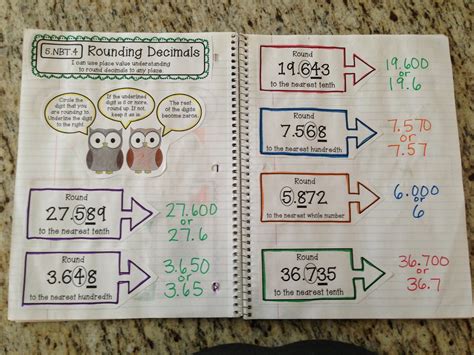 5.NBT.4 Rounding Decimals
I can use place value understanding
to round decimals to any place.
Circle the
digit that you
are rounding to.
Underline the digit
to the right.
If the underlined
digit is 5 or more,
round up. If not,
keep it as is.
The rest
of the digits
become zeros.
Round
27.589
to the nearest tenth
27.600
or
27.6
Round
3.648
to the nearest hundredth
3.650
or
3.65
Round
19.643
to the nearest tenth
19.600
or
19.6
Round
7.568
to the nearest hundredth
7.570
or
7.57
Round
5.872
to the nearest whole number
6.000
or
6
Round
36.735
to the nearest tenth
36.700
or
36.7